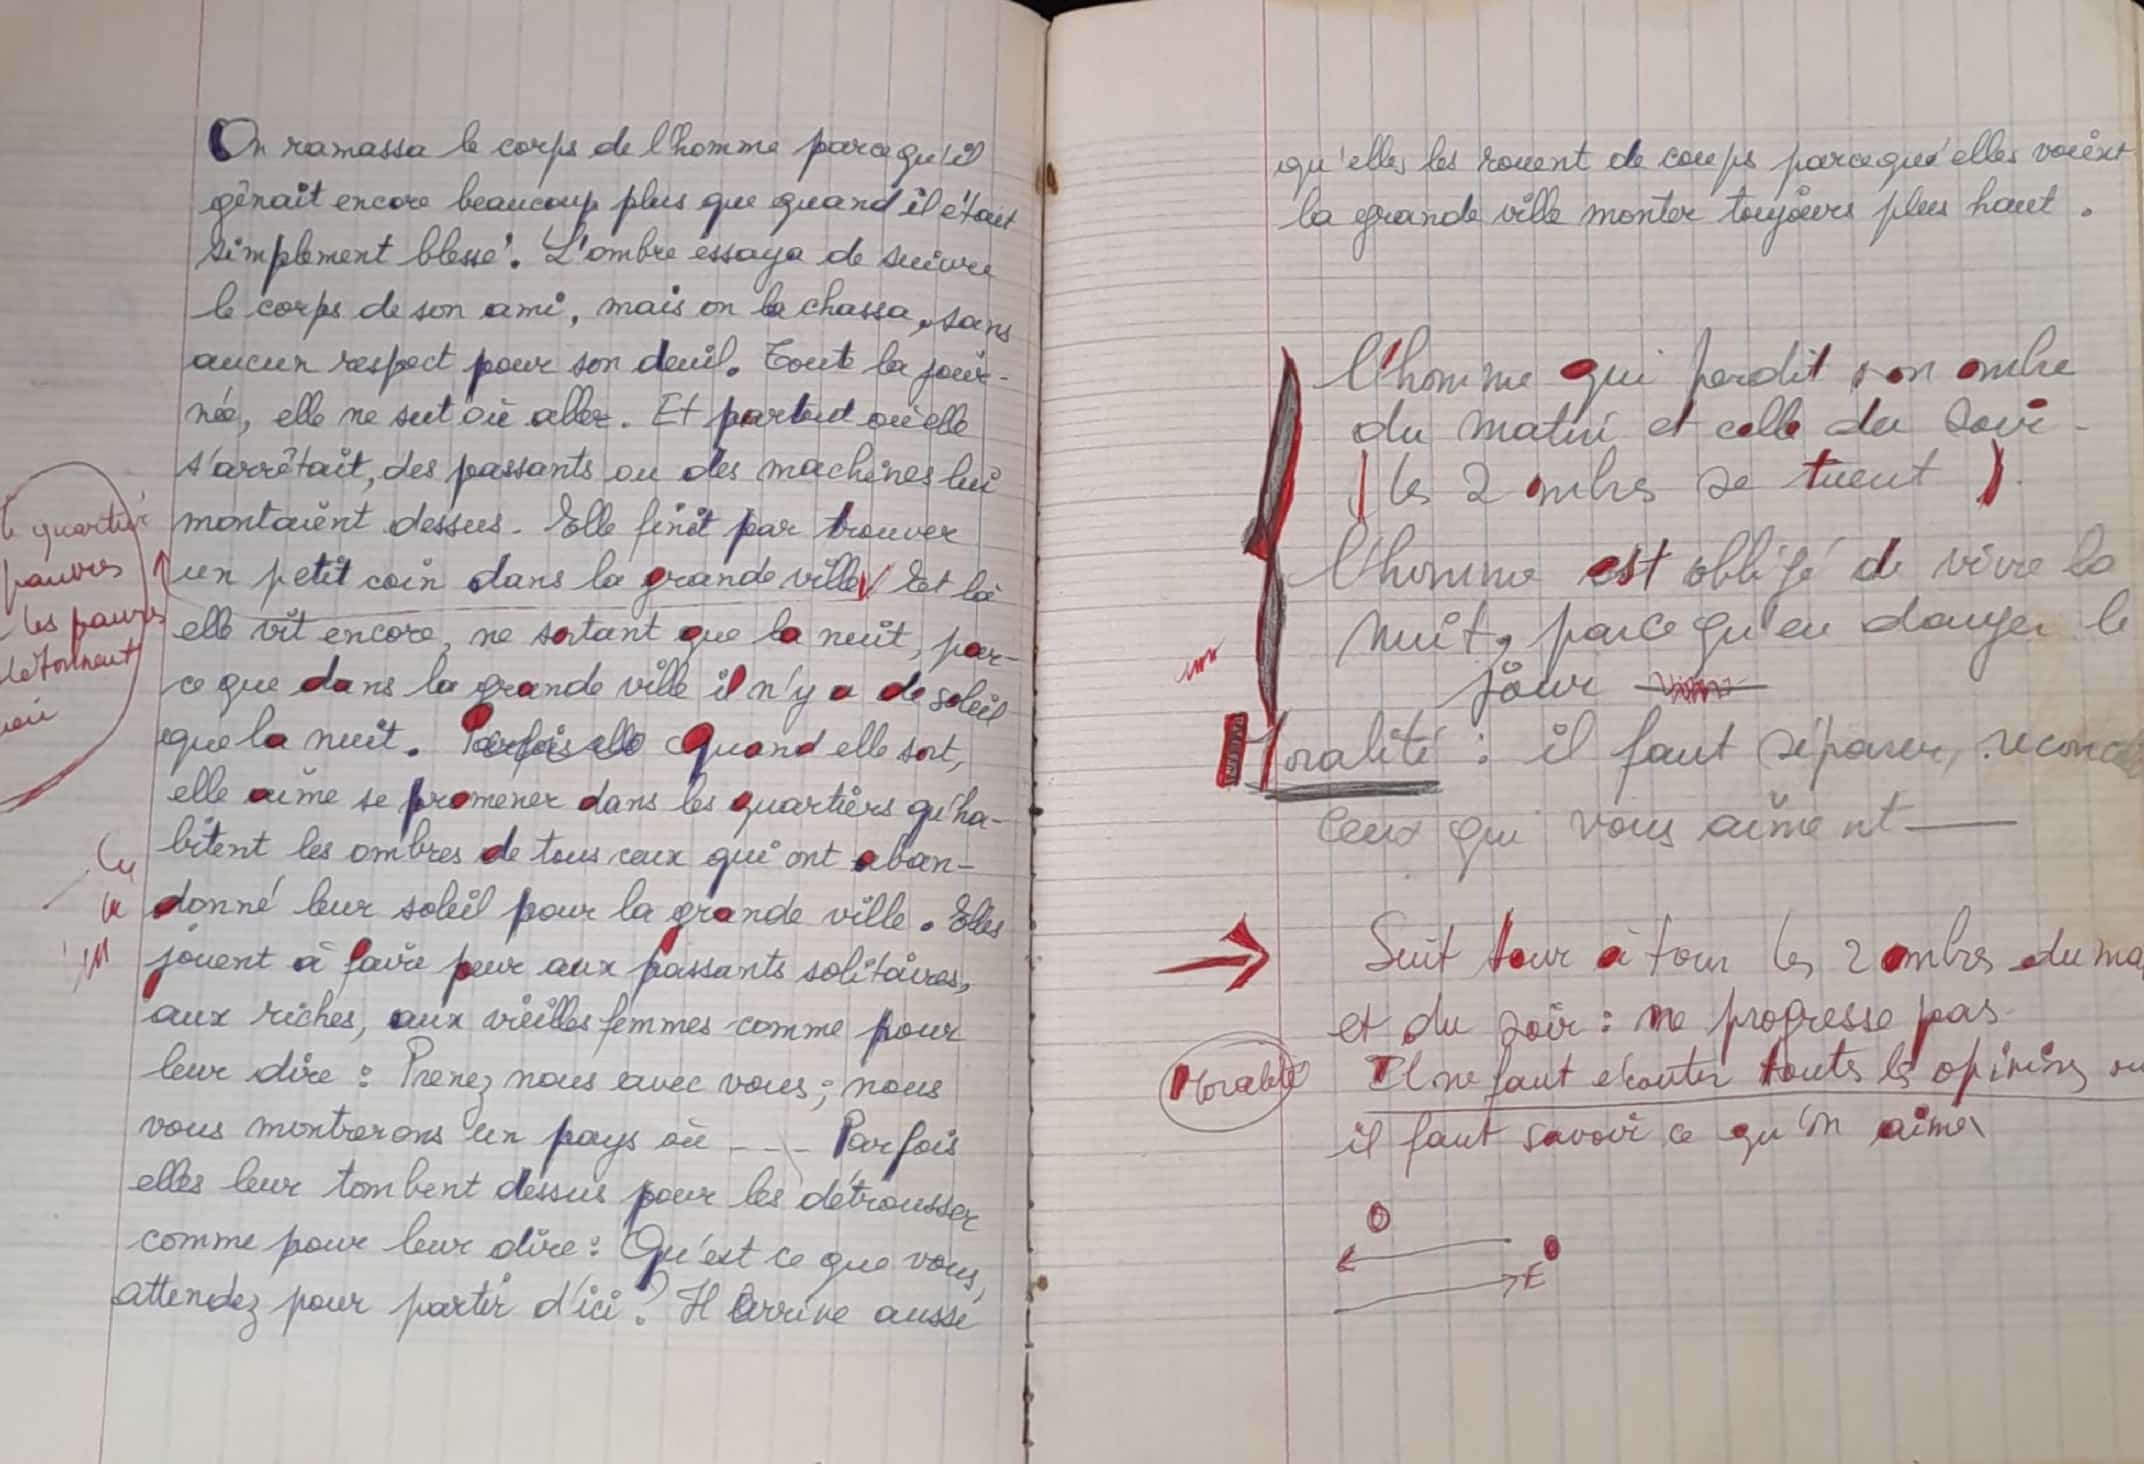 On ramassa le corps de l'homme parcequ'il
gênait encore beaucoup plus que quand il était
simplement blessé. L'ombre essaya de suivre
le corps de son ami, mais on la chassa, sans
aucun respect pour son deuil. Toute la jour-
née, elle ne sut où aller. Et partout où elle
s'arrêtait, des passants ou des machines lui
montaient dessus. Elle finit par trouver
un petit coin dans la grande ville Et là
elle vit encore, ne sortant que la nuit, par-
ce que dans la grande ville il n'y a de soleil
que la nuit. Parfois elle Quand elle sort,
elle aime se promener dans les quartiers qu'ha-
bitent les ombres de tous ceux qui ont aban-
donné leur soleil pour la grande ville. Elles
jouent à faire peur aux passants solitaires,
aux riches, aux vieilles femmes comme pour
leur dire : Prenez nous avec vous ; nous
vous montrerons un pays où ---- Parfois
elles leur tombent dessus pour les détrousser
comme pour leur dire : Qu'est ce que vous
attendez pour partir d'ici ? Il arrive aussi
quartier
pauvres
les pauvres
qu'elles les rouent de coups parcequ'elles voient
la grande ville monter toujours plus haut.
l'homme qui perdit son ombre
du matin et celle du soir -
( les 2 ombres se tuent ).
l'homme est obligé de vivre la
nuit, parce qu'en danger le
jour
Moralité : il faut séparer,
ceux qui vous aiment —
→ Suit tour à tour les 2 ombres du
et du soir : ne progresse pas
Moralité Il ne faut écouter toutes les opinions
il faut savoir ce qu'on aime